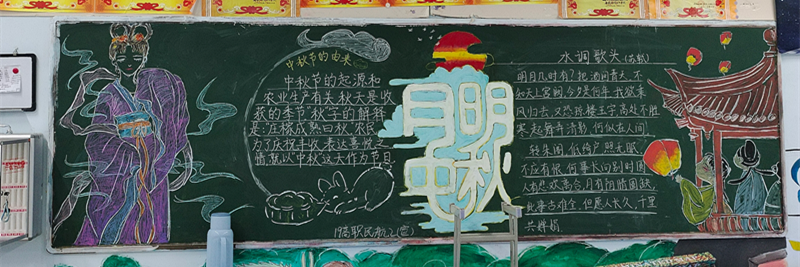 中秋节的由来
中秋节的起源和
农业生产有关,秋天是收
获的季节"秋"字的解释
是:庄稼成熟曰秋,农民
为了庆祝丰收,表达喜悦之
情就以"中秋这天作为节日
19高职民航
月明
中秋
水调歌头(苏轼)
明月几时有?把酒问青天,不
知天上宫阙,今夕是何年,我欲乘
风归去,又恐琼楼玉宇,高处不胜
寒,起舞弄清影,何似在人间
转朱阁,低绮户,照无眠
不应有恨,何事长向别时圆
人有悲欢离合,月有阴晴圆缺
此事古难全,但愿人长久,千里
共婵娟